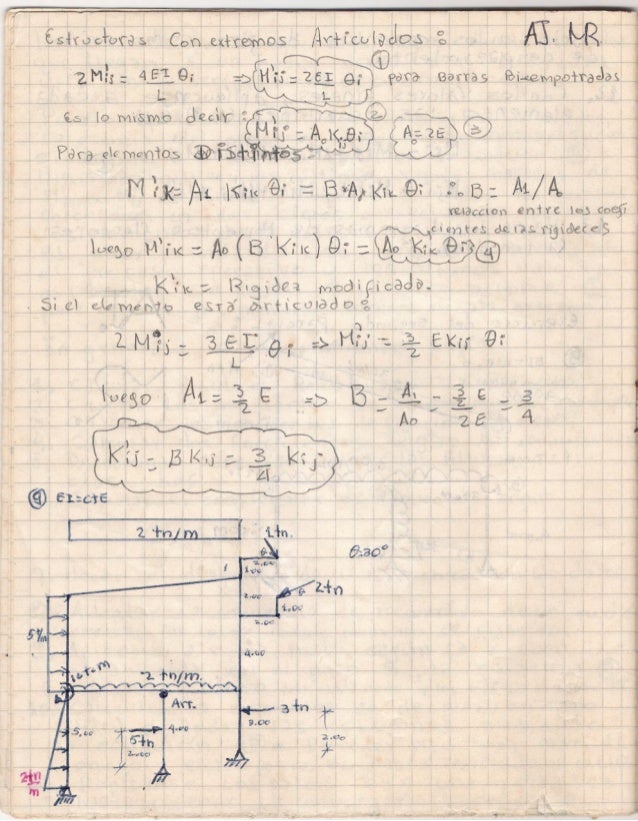 Estructuras Con extremos Articulados: AJ. MR.
2M'ij = 4EI/L θi => M'ij = 2EI/L θi ① para Barras Bi-empotradas
Es lo mismo decir: M'ij = A₀ Kij θi ② A₀ = 2E ③
Para elementos Distintos:
M'ik = A1 Kik θi = B*A₀ Kik θi ∴ B = A1/A₀
relacion entre los coefi
cientes de las rigideces
luego M'ik = A₀ (B Kik) θi = A₀ K'ik θi ④
K'ik = Rigidez modificado.
Si el elemento está articulado:
2M'ij = 3EI/L θi => M'ij = 3/2 E Kij θi
luego A1 = 3/2 E => B = A1/A₀ = 3/2 E / 2E = 3/4
K'ij = B Kij = 3/4 Kij
⑨ EI=CTE
2 tn/m 1tn. θ=30°
θ
2.00
1.00
2.00 θ 2tn
1.00
2.00
4.00
10tn-m 2 tn/m.
Art. 3 tn
5.00 5tn 4.00 2.00
2.00
2tn/m